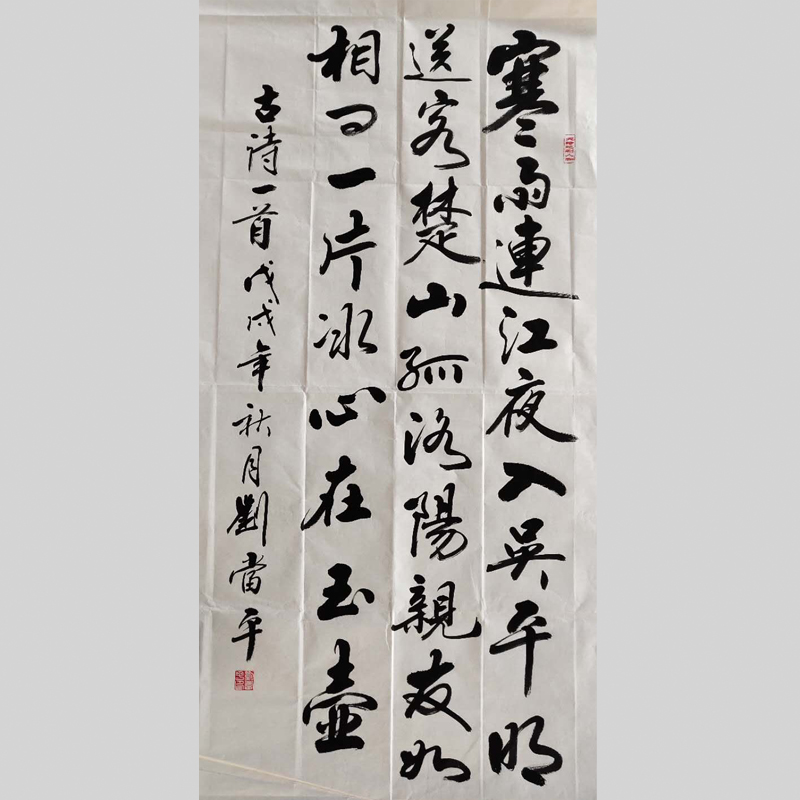 寒雨連江夜入吳平明
送客楚山孤洛陽親友如
相问一片冰心在玉壺
古诗一首戊戌年秋月劉當平